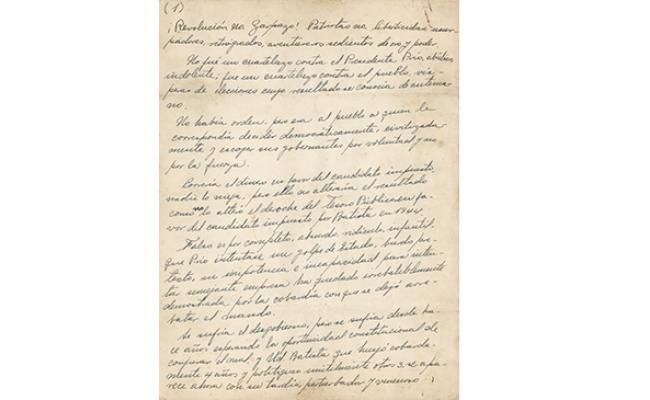 (1)
¡Revolución no Zarpazo! Patriotas no liberticidas usur-
padores, retrógrados, aventureros sedientos de oro y poder.
No fué un cuartelazo contra el Presidente Prío, abúlico,
indolente; fué un cuartelazo contra el pueblo, vís-
peras de elecciones cuyo resultado se conocía de antema-
no.
No había orden, pero era el pueblo a quien le
correspondía decidir democráticamente, civilizada
mente y escoger sus gobernantes por voluntad y no
por la fuerza.
Correría el dinero en favor del candidato impuesto,
nadie lo niega, pero ello no alteraría el resultado
como no lo alteró el derroche del Tesoro Público en fa-
vor del candidato impuesto por Batista en 1944.
Falso es por completo, absurdo, ridículo, infantil,
que Prío intentase un golpe de Estado, burdo pre-
texto, su impotencia e incapacidad para inten-
tar semejante empresa ha quedado irrebatiblemente
demostrada por la cobardía con que se dejó arre-
batar el mando.
Se sufría el desgobierno, pero se sufría desde ha-
ce años esperando la oportunidad constitucional de
conjurar el mal, y Ud. Batista que huyó cobarde-
mente 4 años y politiqueó inútilmente otros 3, se apa-
rece ahora con su tardío, perturbador y venenoso